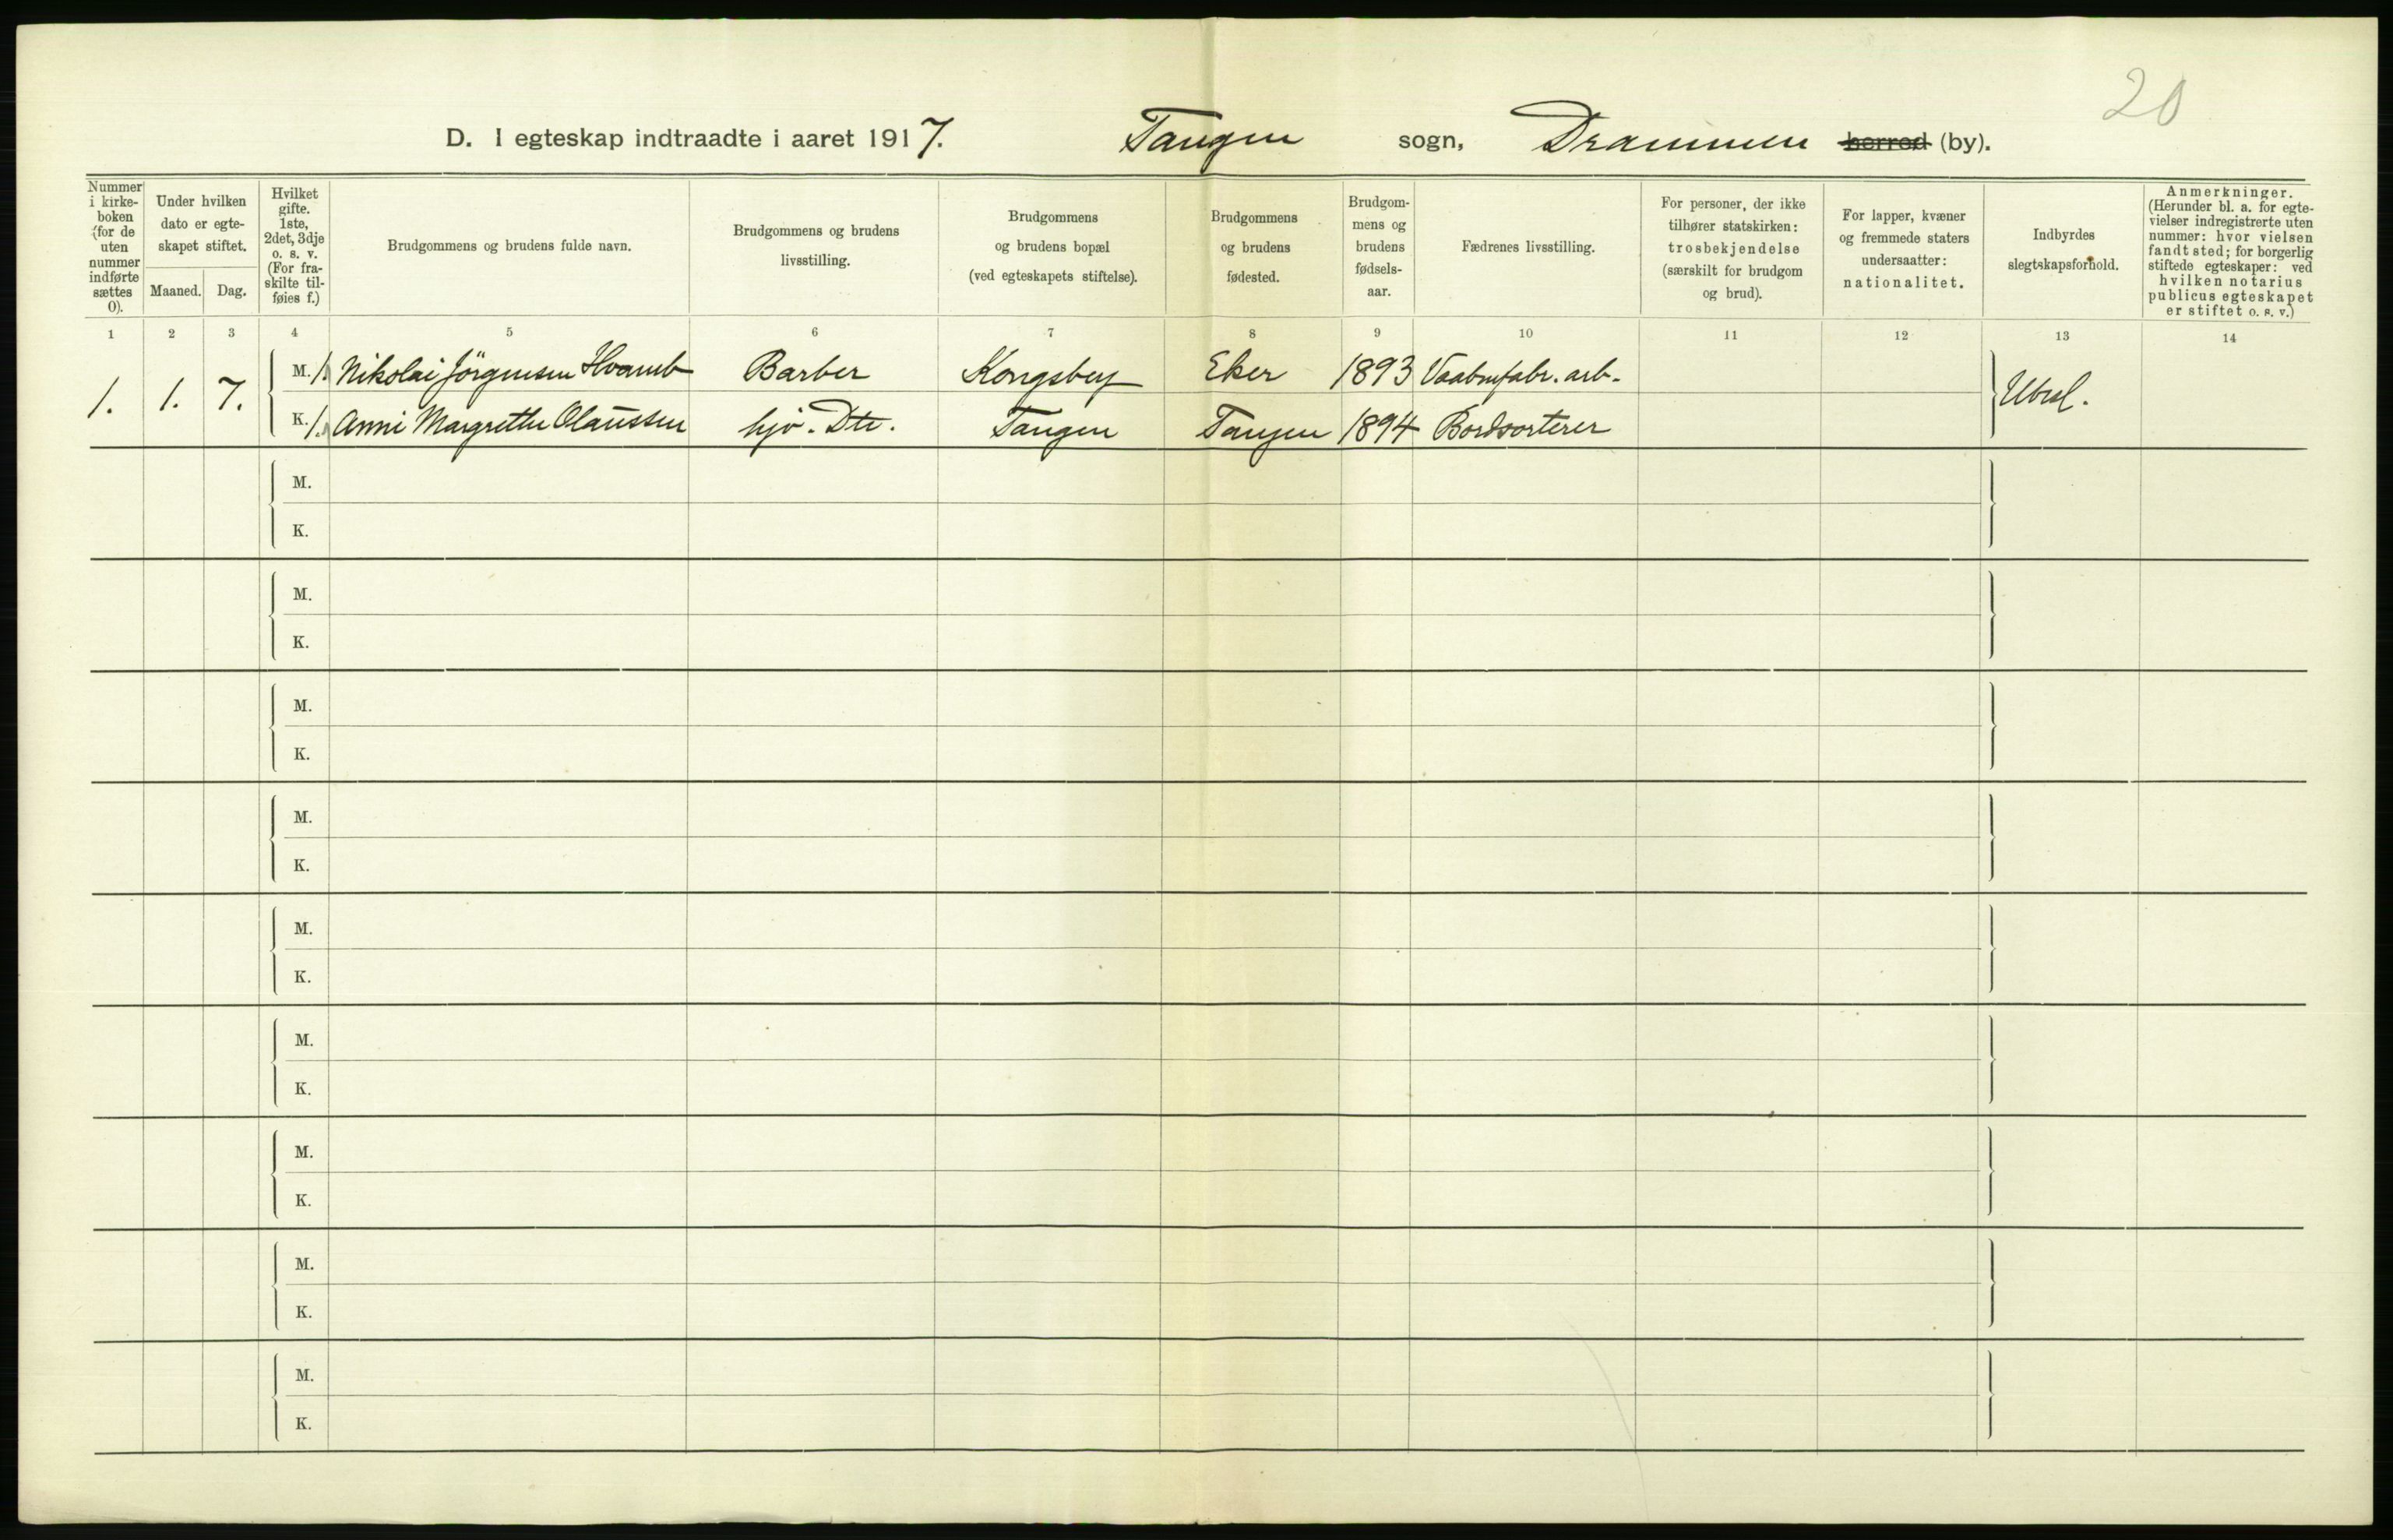 20
D. I egteskap indtraadte i aaret 1917. Tangen sogn, Drammen herred (by).
Nummer i kirke-boken (for de uten nummer indførte sættes 0).
Under hvilken dato er egte-skapet stiftet.
Maaned. Dag.
Hvilket gifte. 1ste, 2det, 3dje o. s. v. (For fra-skilte til-føies f.)
Brudgommens og brudens fulde navn.
Brudgommens og brudens livsstilling.
Brudgommens og brudens bopæl (ved egteskapets stiftelse).
Brudgommens og brudens fødested.
Brudgom-mens og brudens fødsels-aar.
Fædrenes livsstilling.
For personer, der ikke tilhører statskirken: trosbekjendelse (særskilt for brudgom og brud).
For lapper, kvæner og fremmede staters undersaatter: nationalitet.
Indbyrdes slegtskapsforhold.
Anmerkninger. (Herunder bl. a. for egte-vielser indregistrerte uten nummer: hvor vielsen fandt sted; for borgerlig stiftede egteskaper: ved hvilken notarius publicus egteskapet er stiftet o. s. v.)
1 2 3 4 5 6 7 8 9 10 11 12 13 14
1. 1. 7.
M. 1. Nikolai Jörgensen Hvamb Barber Kongsberg Eker 1893 Vaabenfabr. arb.
K. 1. Anni Margrethe Olaussen hjv. Dtr. Tangen Tangen 1894 Bordsorterer
Ubesl.
M.
K.
M.
K.
M.
K.
M.
K.
M.
K.
M.
K.
M.
K.
M.
K.
M.
K.